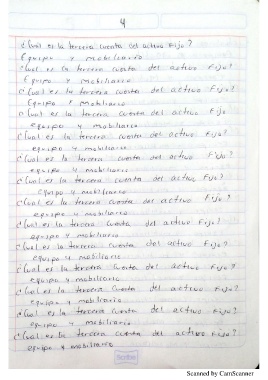 4
¿Cual es la tercera cuenta del activo Fijo?
Equipo y mobiliario
¿Cual es la tercera cuenta del activo Fijo?
Equipo y mobiliario
¿Cual es la tercera cuenta del activo Fijo?
Equipo y mobiliario
¿Cual es la tercera cuenta del activo Fijo
equipo y mobiliario
¿Cual es la tercera cuenta del activo Fijo?
equipo y mobiliario
¿Cual es la tercera cuenta del activo Fijo?
equipo y mobiliario
¿Cual es la tercera cuenta del activo Fijo?
Equipo y mobiliario
¿Cual es la tercera cuenta del activo Fijo?
equipo y mobiliario
¿Cual es la tercera cuenta del activo Fijo?
equipo y mobiliario
¿Cual es la tercera cuenta del activo Fijo?
equipo y mobiliario
¿Cual es la tercera cuenta del activo Fijo?
equipo y mobiliario
¿Cual es la tercera cuenta del activo Fijo?
equipo y mobiliario
¿Cual es la tercera cuenta del activo Fijo?
equipo y mobiliario
Scribe
Scanned by CamScanner